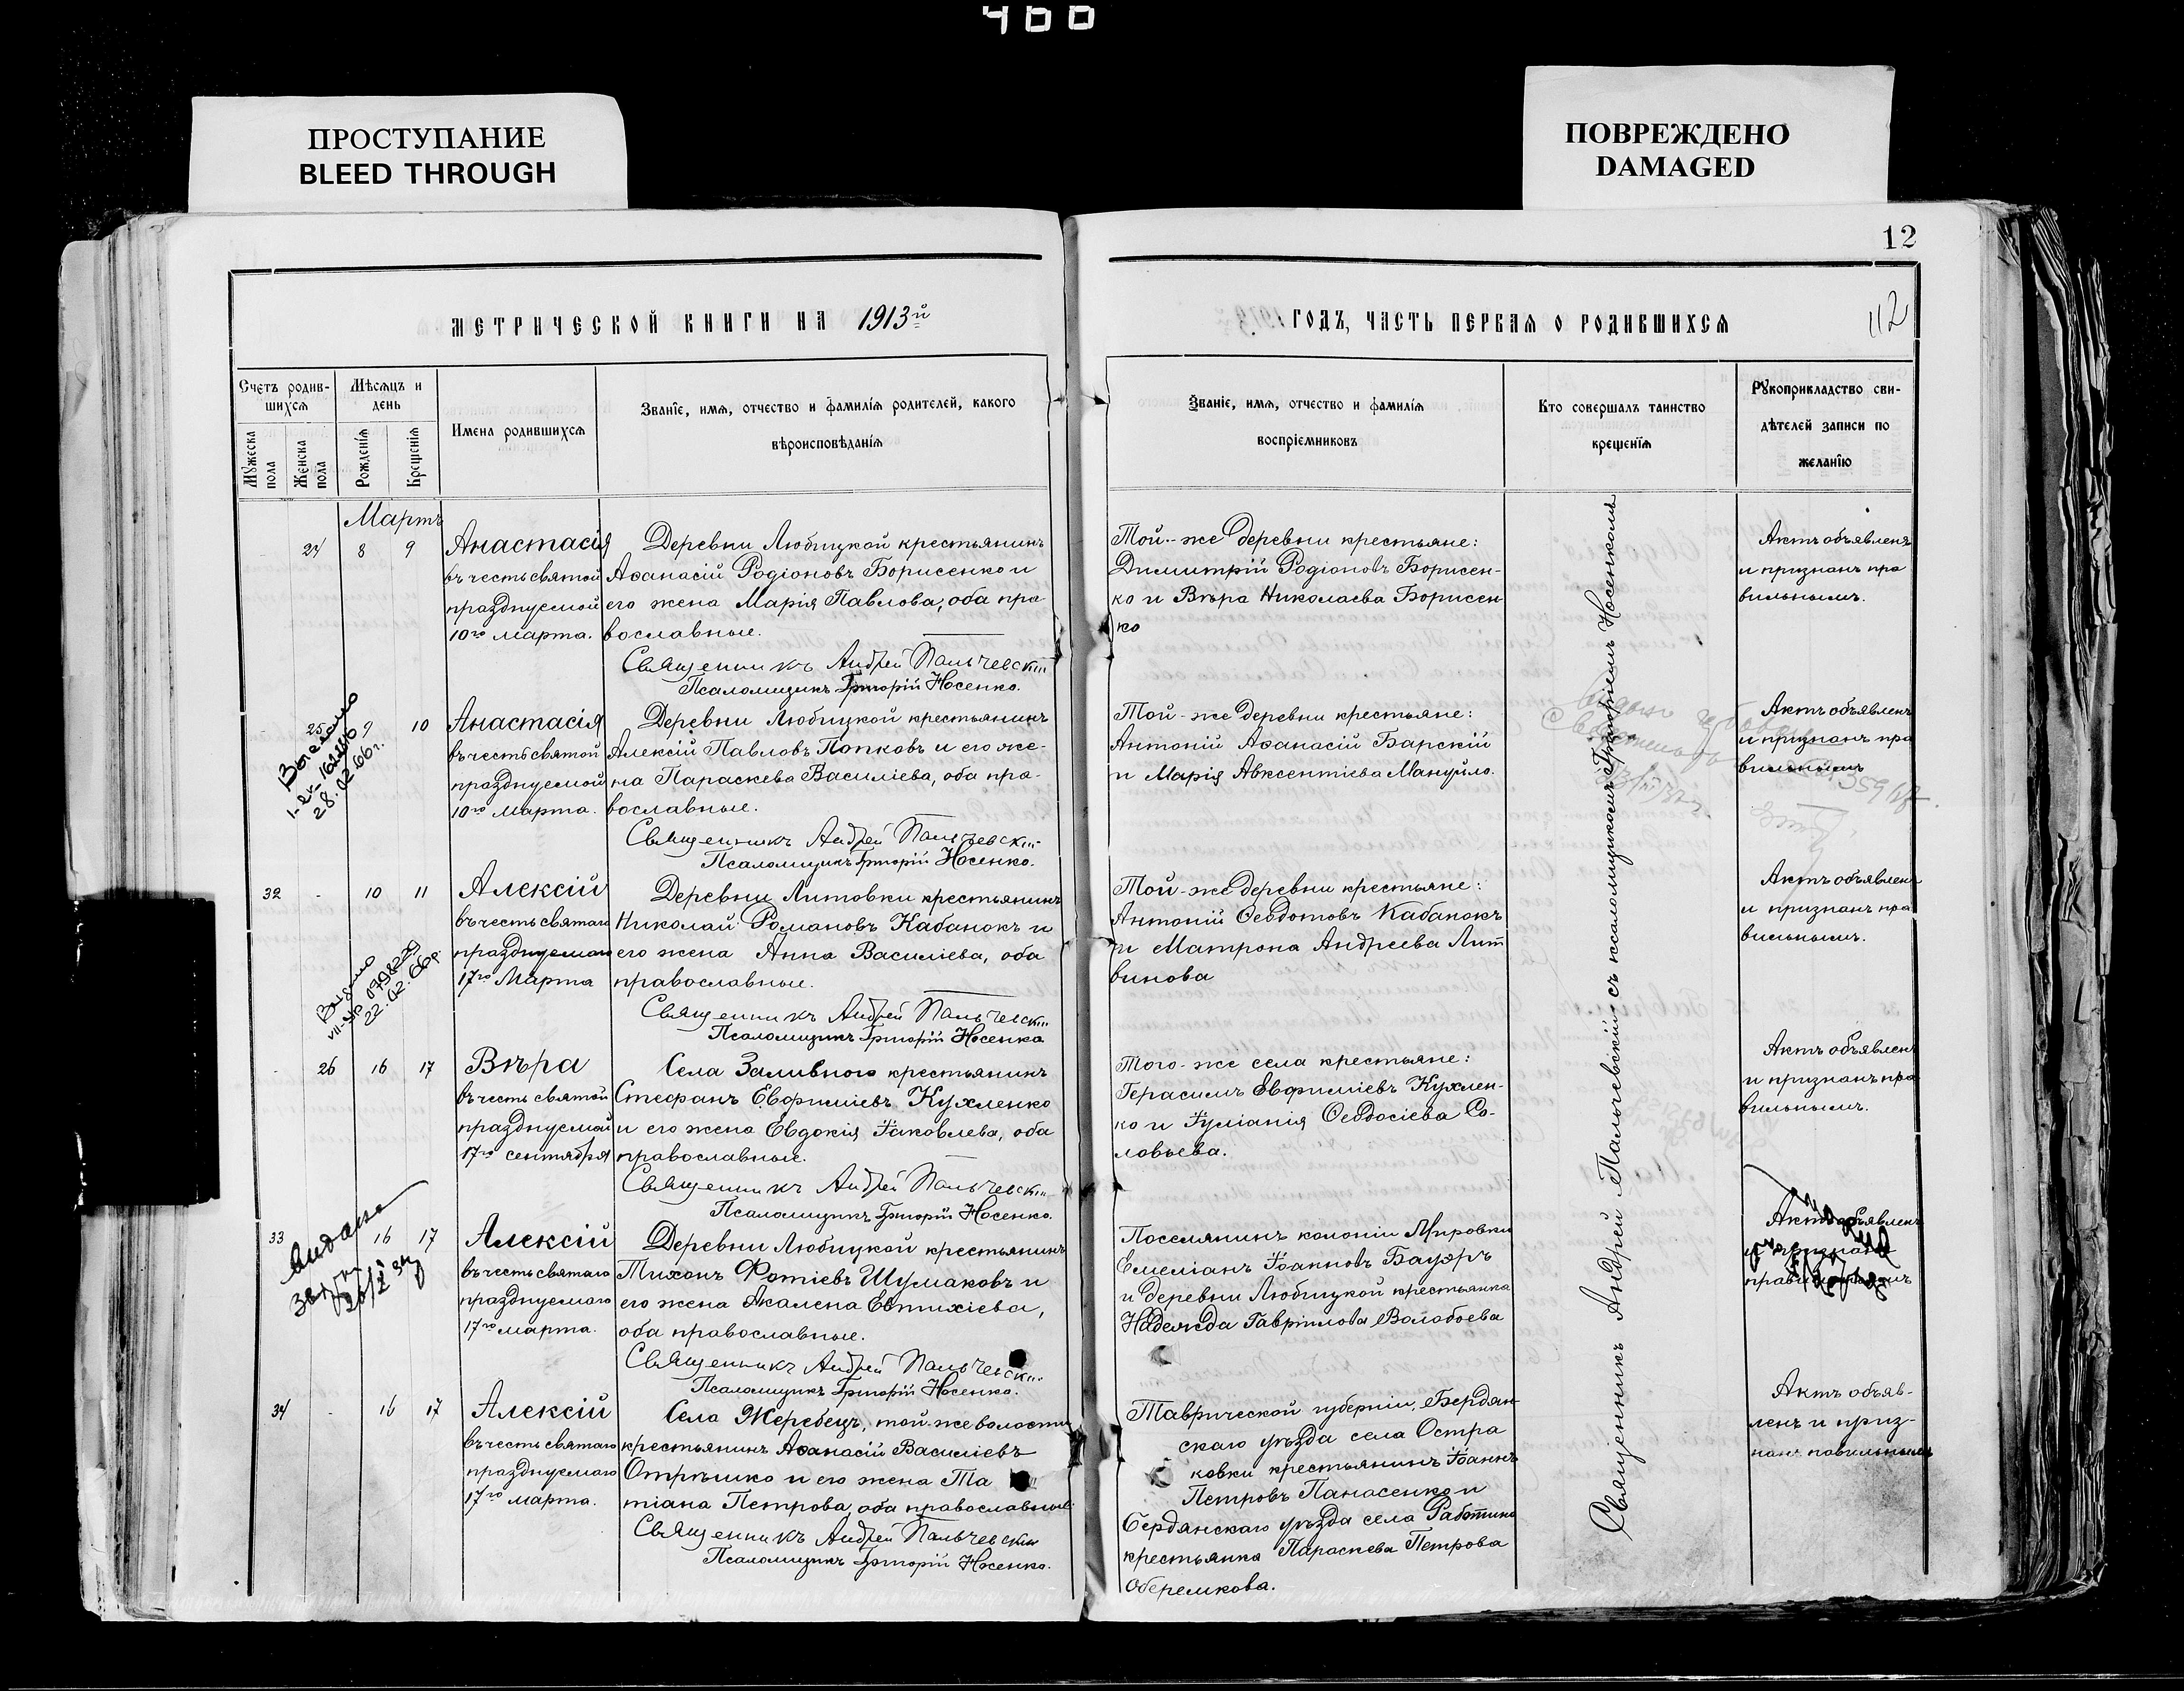 400
ПРОСТУПАНИЕ
BLEED THROUGH
ПОВРЕЖДЕНО
DAMAGED
12
112
МЕТРИЧЕСКОЙ КНИГИ НА 1913й
ГОДЪ, ЧАСТЬ ПЕРВАЯ О РОДИВШИХСЯ
Счетъ родив-
шихся
Мѣсяцъ и
день
Мужеска
пола
Женска
пола
Рожденія
Крещенія
Имена родившихся
Званіе, имя, отчество и фамилія родителей, какого
вѣроисповѣданія
Званіе, имя, отчество и фамилія
воспріемниковъ
Кто совершалъ таинство
крещенія
Рукоприкладство сви-
дѣтелей записи по
желанію
Мартъ
24 8 9
Анастасія
въ честь святой
празднуемой
10го марта.
Деревни Любицкой крестьянинъ
Аѳанасій Родіоновъ Борисенко и
его жена Марія Павлова, оба пра-
вославные.
Священникъ Андрей Пальчевскій
Псаломщикъ Григорій Носенко.
Той-же деревни крестьяне:
Димитрій Родіоновъ Борисен-
ко и Вѣра Николаева Борисен
ко
Актъ объявленъ
и признанъ пра
вильнымъ.
25 9 10
28.02.66г.
Анастасія
въ честь святой
празднуемой
10го марта.
Деревни Любицкой крестьянинъ
Алексій Павловъ Попковъ и его же-
на Параскева Василіева, оба пра-
вославные.
Священникъ Андрей Пальчевскій
Псаломщикъ Григорій Носенко.
Той-же деревни крестьяне:
Антоній Аѳанасій Барскій
и Марія Авксентіева Мануйло.
Актъ объявленъ
и признанъ пра
вильнымъ
32 - 10 11
22.02.66р.
Алексій
въ честь святаго
празднуемаго
17го Марта
Деревни Литовки крестьянинъ
Николай Романовъ Кабанокъ и
его жена Анна Василіева, оба
православные.
Священникъ Андрей Пальчевскій
Псаломщикъ Григорій Носенко
Той-же деревни крестьяне:
Антоній Ѳеодотовъ Кабанокъ
и Матрона Андреева Лит
винова
Актъ объявленъ
и признанъ пра
вильнымъ.
- 26 16 17
Вѣра
въ честь святой
празднуемой
17го сентября
Села Заливного крестьянинъ
Стефанъ Евфиміевъ Кухленко
и его жена Евдокія Іаковлева, оба
православные.
Священникъ Андрей Пальчевскій
Псаломщикъ Григорій Носенко.
Того-же села крестьяне:
Герасимъ Евфиміевъ Кухлен-
ко и Іуліанія Ѳеодосіева Со-
ловьева.
Актъ объявленъ
и признанъ пра
вильнымъ.
33 16 17
Алексій
въ честь святаго
празднуемаго
17го марта.
Деревни Любицкой крестьянинъ
Тихонъ Фотіевъ Шумаковъ и
его жена Акалена Евтихіева,
оба православные.
Священникъ Андрей Пальчевскій
Псаломщикъ Григорій Носенко.
Поселянинъ колоніи Мировки
Емеліанъ Іоанновъ Бауэръ
и деревни Любицкой крестьянка
Надежда Гавріилова Волобоева
Актъ объявленъ
и признанъ
правильнымъ
34 - 16 17
Алексій
въ честь святаго
празднуемаго
17го марта.
Села Жеребецъ, той-же волости
крестьянинъ Аѳанасій Василіевъ
Отрѣшко и его жена Та
тіана Петрова, оба православные.
Священникъ Андрей Пальчевскій
Псаломщикъ Григорій Носенко.
Таврической губерніи, Бердян-
скаго уѣзда села Остра
ковки крестьянинъ Іоаннъ
Петровъ Панасенко и
Бердянскаго уѣзда села Работино
крестьянка Параскева Петрова
Оберемкова.
Актъ объяв-
ленъ и приз-
нанъ павильнымъ
Священникъ Андрей Пальчевскій съ псаломщикомъ Григоріемъ Носенкомъ